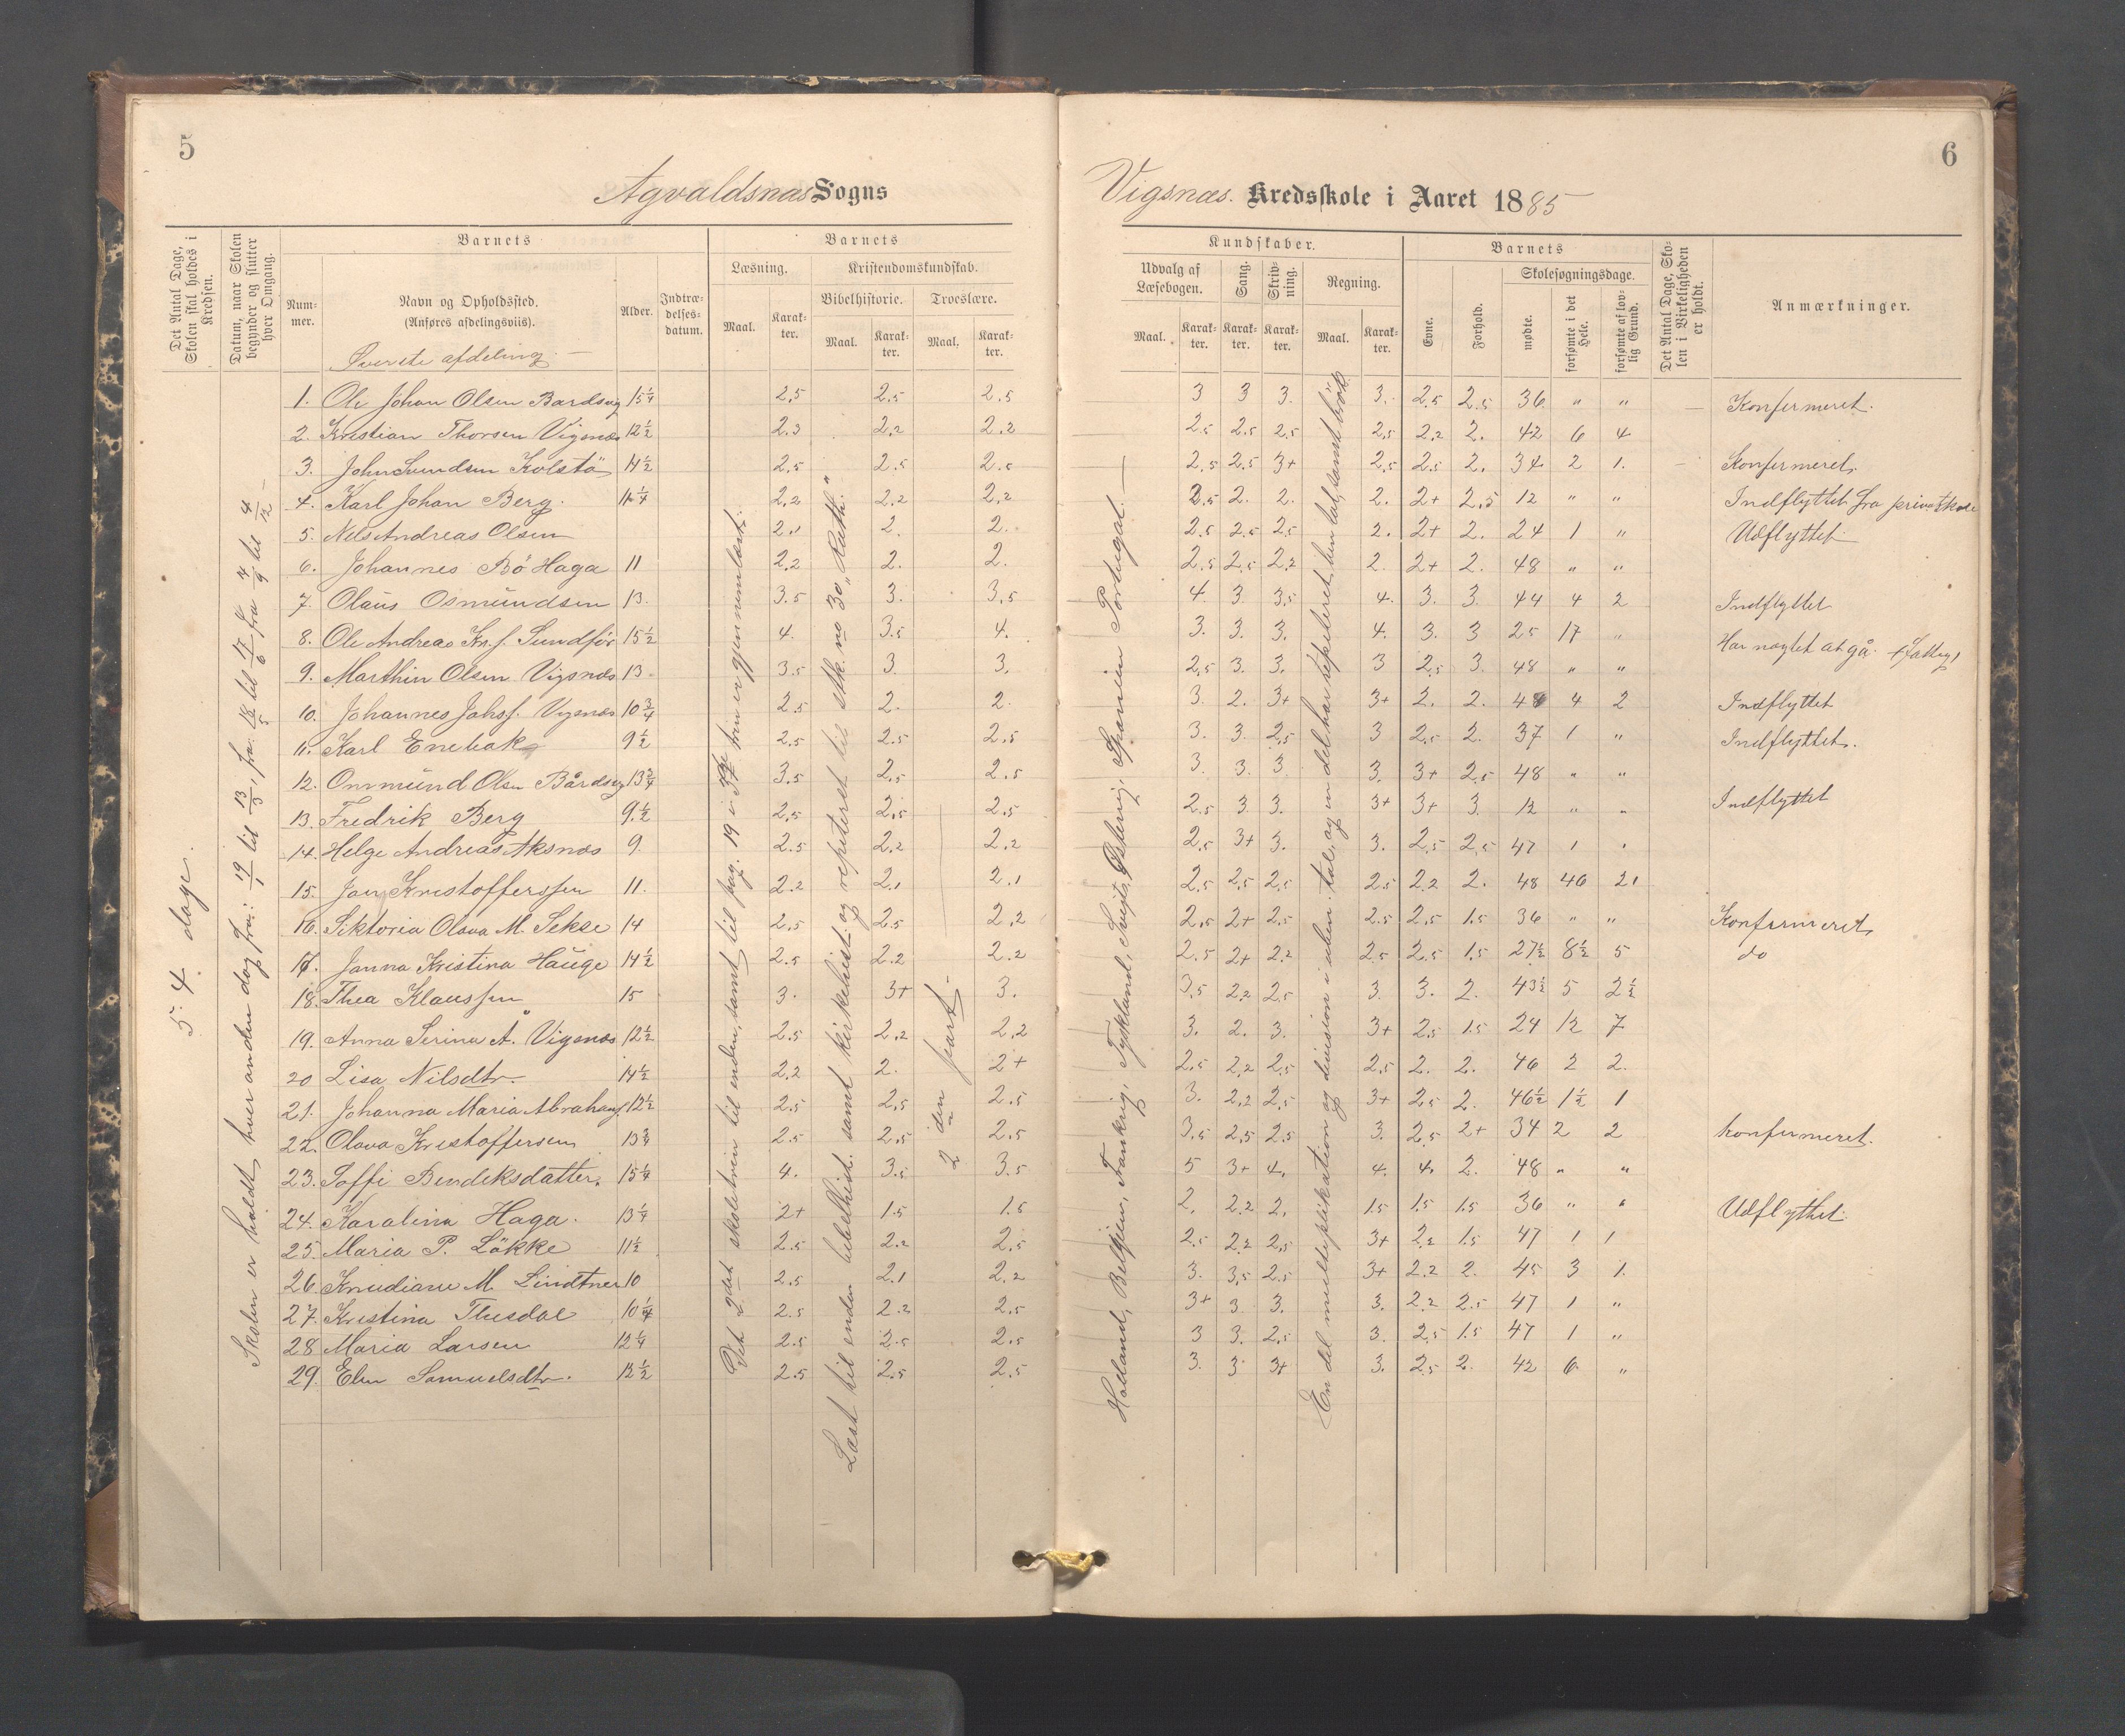 5
Agvaldsnæs Sogns
Det Antal Dage, Skolen skal holdes i Kredsen.
Datum, naar Skolen begynder og slutter hver Omgang.
Barnets
Barnets
Læsning.
Kristendomskundskab.
Bibelhistorie.
Troeslære.
Num- mer.
Navn og Opholdssted.
(Anføres afdelingsviis).
Alder.
Indtræ- delses- datum.
Maal.
Karak- ter.
Maal.
Karak- ter.
Maal.
Karak- ter.
Øverste afdeling. —
1. Ole Johan Olsen Bardsvg 15 1/4 2.5 2.5 2.5
2. Kristian Thorsen Vigsnæs 12 1/2 2.3 2.2 2.2
3. John Svendsen Kolstö 14 1/2 2.5 2.5 2.5
4. Karl Johan Berg. 11 1/4 2.2 2.2 2.2
5. Nels Andreas Olsen 2.1 2. 2.
6. Johannes Bö Haga 11 2.2 2. 2.
7. Olaus Osmundsen 13. 3.5 3. 3.5
8. Ole Andreas Kn.s. Sundför 15 1/2 4. 3.5 4.
9. Marthin Olsen Vigsnæs 13. 3.5 3 3.
10. Johannes Johs. Vigsnæs 10 3/4 2.5 2. 2.
11. Karl Enebak 9 1/2 2.5 2.5 2.5
12. Osmund Olsen Bårdsvg 13 3/4 3.5 2.5 2.5
13. Fredrik Berg 9. 1/2 2.5 2.5 2.5
14. Helge Andreas Aksnæs 9. 2.5 2.2 2.2
15. Jan Kristofferssen 11. 2.2 2.1 2.1
16. Siktoria Olava M. Sekse 14 2.5 2.5 2.2
17. Janna Kristina Hauge 14 1/2 2.5 2.2 2.2
18. Thea Klaussen 15 3. 3+ 3.
19. Anna Serina Å. Vigsnæs 12 1/2 2.5 2.2 2.2
20 Lisa Nilsdtr. 14 1/2 2.2 2. 2+
21. Johanna Maria Abrahams 12 1/2 2.5 2.5 2.5
22. Olava Kristoffersen 13 3/4 2.5 2.5 2.5
23. Soffi Bendeksdatter. 15 1/4 4. 3.5 3.5
24. Karolina Haga. 13 1/4 2+ 1.5 1.5
25. Maria P. Lökke 11 1/2 2.5 2.2 2.5
26. Knudiane M. Lindtner 10 2.5 2.1 2.2
27. Kristina Tlusdal 10 1/4 2.5 2.2 2.5
28 Maria Larsen 12 1/4 2.5 2.5 2.5
29. Elen Samuelsdtr. 12 1/2 2.5 2.5 2.5
54 dage.
Skolen er holdt hver anden dag fra: 19/1 til 13/3, fra: 18/5 til 17/6 fra 4/9 til 4/12 —
Ved 2det skoletrin til enden, samt til pag. 19 i 3die trin er gjennemlæst.
Læst til enden bibelhist. samt kirkehist. og repeteret til stk. no 30 „Ruth."
2 den part —
6
Vigsnæs. Kredsskole i Aaret 1885
Kundskaber.
Barnets
Udvalg af Læsebogen.
Sang.
Skriv- ning.
Regning.
Evne.
Forhold.
Skolesøgningsdage.
mødte.
forsømte i det Hele.
forsømte af lov- lig Grund.
Det Antal Dage, Sko- len i Virkeligheden er holdt.
Anmærkninger.
Maal.
Karak- ter.
Karak- ter.
Karak- ter.
Maal.
Karak- ter.
3 3 3. 3. 2.5 2.5 36 „ „ — Konfermeret.
2.5 2.5 2.5 2.5 2.2 2. 42 6 4
2.5 2.5 3+ 2.5 2.5 2. 34 2 1. — Konfermeret.
2.5 2. 2. 2. 2+ 2.5 12 „ „ Indflyttet fra privatskole
2.5 2.5 2.5 2. 2+ 2. 24 1 „ Udflyttet
2.5 2.5 2.2 2. 2+ 2. 48 „ „
4. 3. 3.5 4. 3. 3. 44 4 2 Indflyttet
3. 3. 3. 4. 3. 3 25 17 „ Har nægtet at gå.
2.5 3. 3. 3 2.5 3. 48 „ „
3. 2. 3+ 3+ 2. 2. 44 4 2 Indflyttet
3. 3. 2.5 3 2.5 2. 37 1 „ Indflyttet.
3. 3. 3. 3. 3+ 2.5 48 „ „
2.5 3 3. 3+ 3+ 3. 12 „ „ Indflyttet
2.5 3+ 3. 3. 2.5 2.5 47 1 „
2.5 2.5 2.5 2.5 2.2 2. 48 46 21
2.5 2+ 2.5 2.5 2.5 1.5 36 „ „ Konfermeret,
2.5 2+ 2.2 2.5 2.5 1.5 27 1/2 8 1/2 5 do
3.5 2.2 2.5 3. 3. 2. 43 1/2 5 2 1/2
3. 2. 3. 3+ 2.5 1.5 24 12 7
2.5 2.2 2.5 2.5 2. 2. 46 2 2.
3. 2.2 2.5 3+ 2.5 2. 46 1/2 1 1/2 1
3.5 2.5 2.5 3. 2.5 2+ 34 2 2 Konfermeret.
5 3+ 4. 4. 4. 2. 48 „ „
2. 2.2 2. 1.5 1.5 1.5 36 „ „ Udflyttet.
2.5 2.2 2.5 3+ 2.2 1.5 47 1 1
3. 3.5 2.5 3+ 2.2 2. 45 3 1.
3+ 3. 3. 3. 2.2 2.5 47 1 „
3 3. 2.5 3. 2.5 1.5 47 1 „
3. 3 3+ 3. 2.5 2. 42 6 „
Holland, Belgjien, Frankrig, Tyskland, Svejts, Østerrig, Spanien Portugal. —
En del multiplikation og division i uben. tal, og en del har repeteret ben. tal, samt brök.